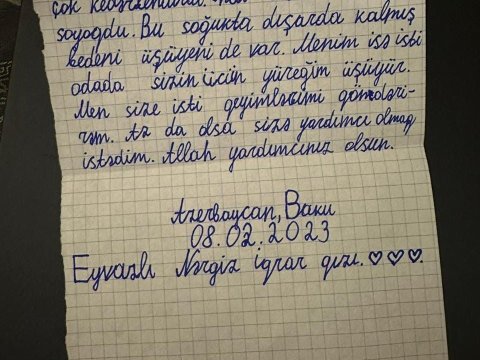 çok
soyogdu. Bu soğukta dışarda kalmış
bedeni üşüyeni de var. Menim isə isti
odada sizin üçün yüreğim üşüyür.
Men size isti geyimlərimi göndəri-
rəm. Az da olsa sizə yardımcı olmaq
istədim. Allah yardımcınız olsun.
Azerbaycan, Baku
08.02.2023
Eyvazlı Nərgiz İqrar qızı. ♡♡♡.